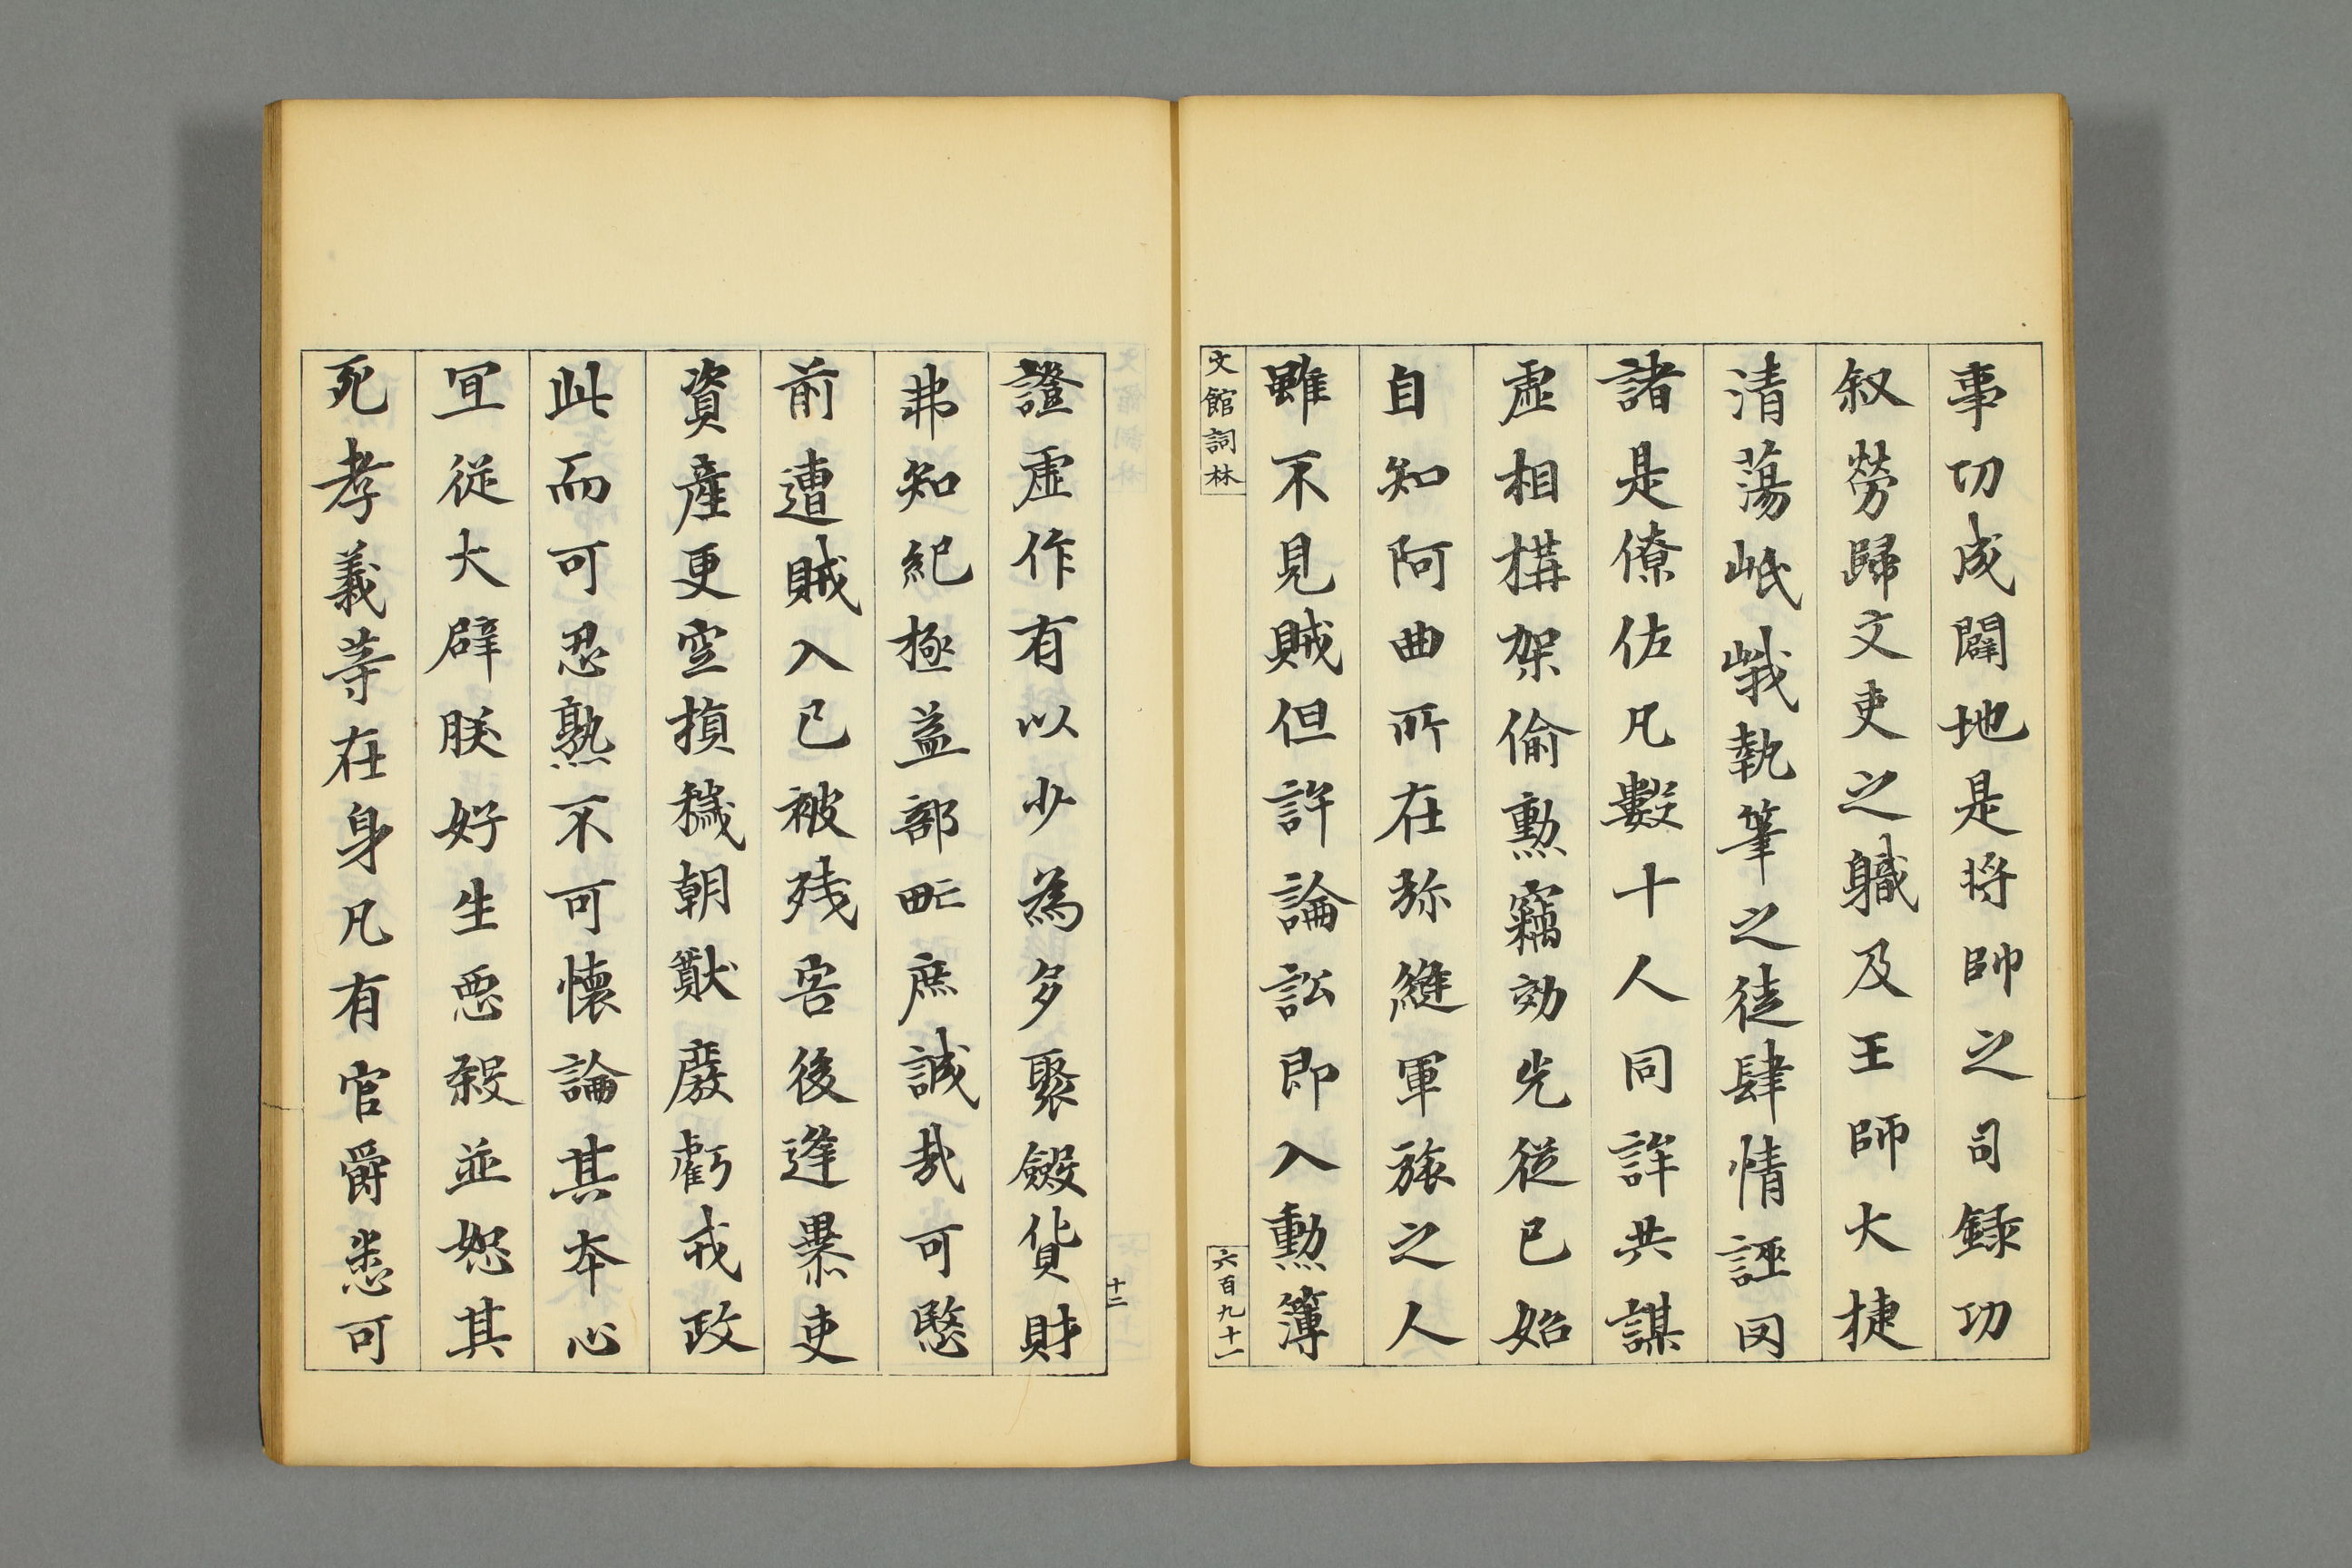 事功成闢地是将帥之司録功
叙勞歸文吏之軄及王師大捷
清蕩岷峩執筆之徒肆情誣罔
諸是僚佐凡數十人同詳共謀
虛相構架偷勲竊効先從已始
自知阿曲所在弥縫軍旅之人
雖不見賊但詳論訟即入勲簿
文館詞林
六百九十一
證虛作有以少為多聚斂貨財
弗知紀極益部甿庶誠哉可愍
前遭賊入已被残害後逢㬥吏
資產更空損穢朝猷廢虧戎政
此而可忍熟不可懷論其本心
宜從大辟朕好生惡殺並恕其
死孝義等在身凡有官爵悉可
十二